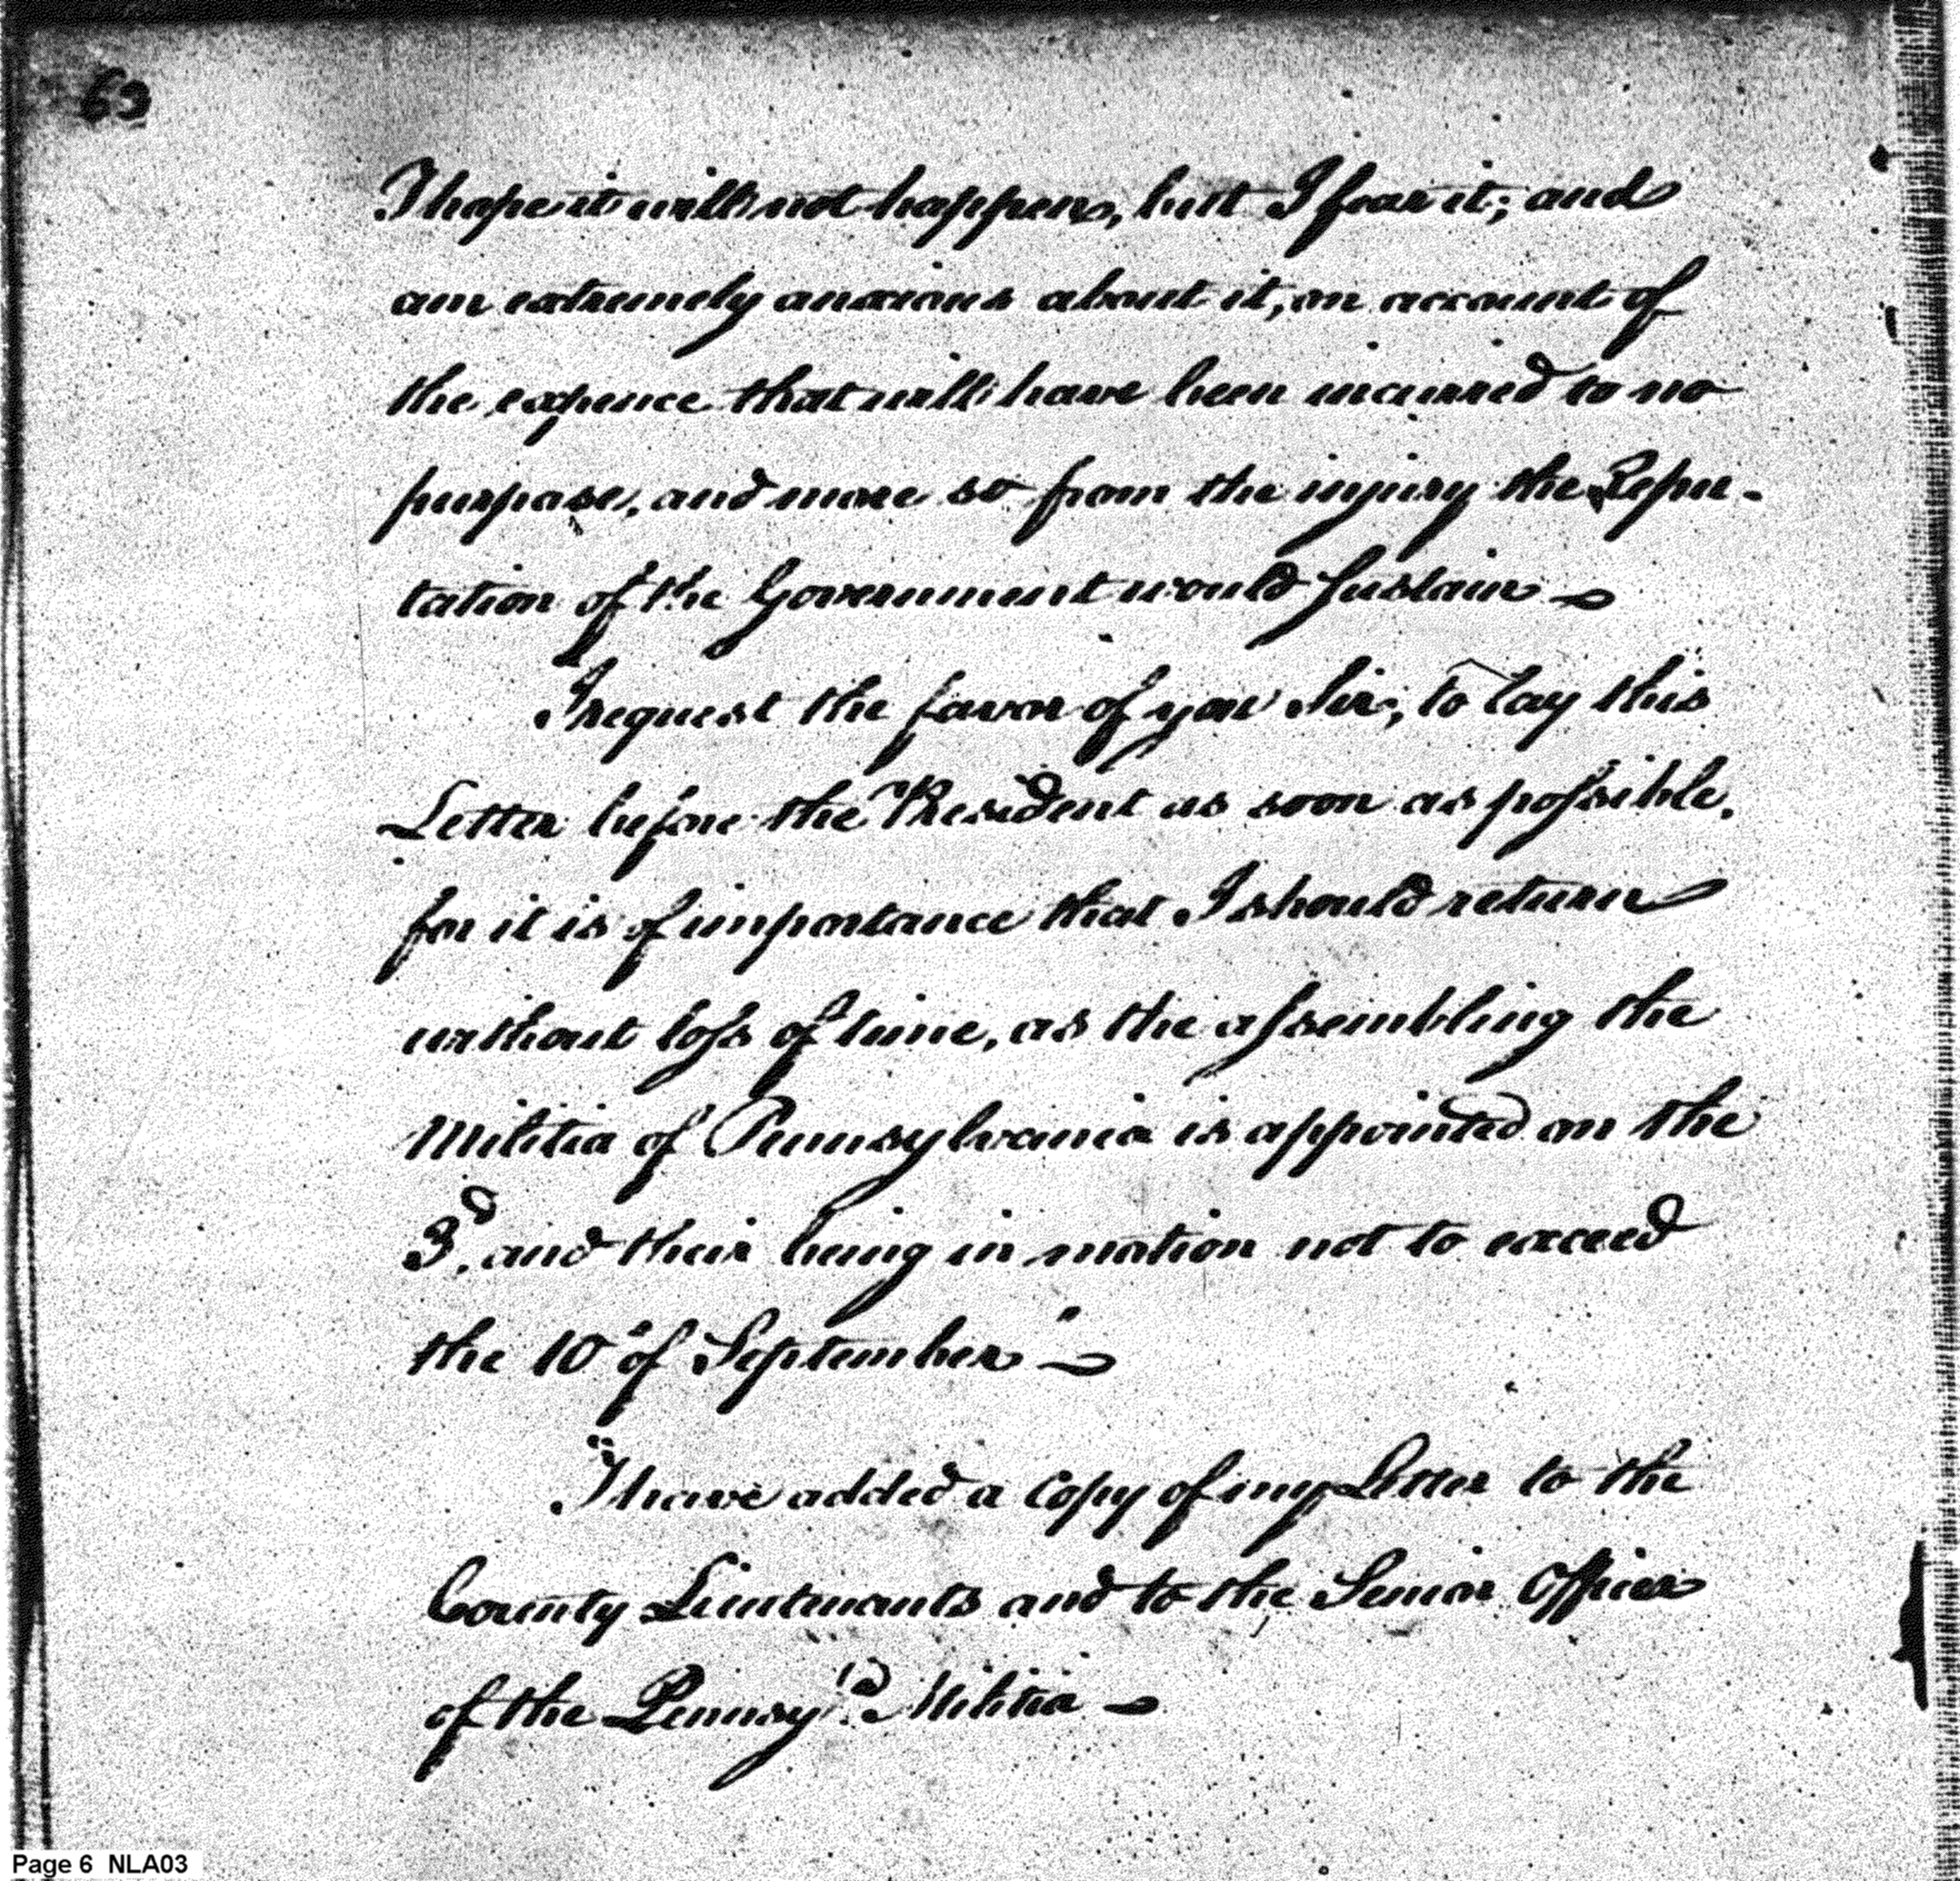 63
I hope it will not happen, but I fear it; and
am extremely anxious about it, on account of
the expence that will have been incurred to no
purpose, and more so from the injury the Repu-
tation of the Government would sustain —
I request the favor of you Sir, to lay this
Letter before the President as soon as possible,
for it is of importance that I should return
without loss of time, as the assembling the
Militia of Pennsylvania is appointed on the
3d. and their being in motion not to exceed
the 10 of September —
I have added a copy of my Letter to the
County Lieutenants and to the Senior Officer
of the Pennsyla. Militia —
Page 6 NLA03